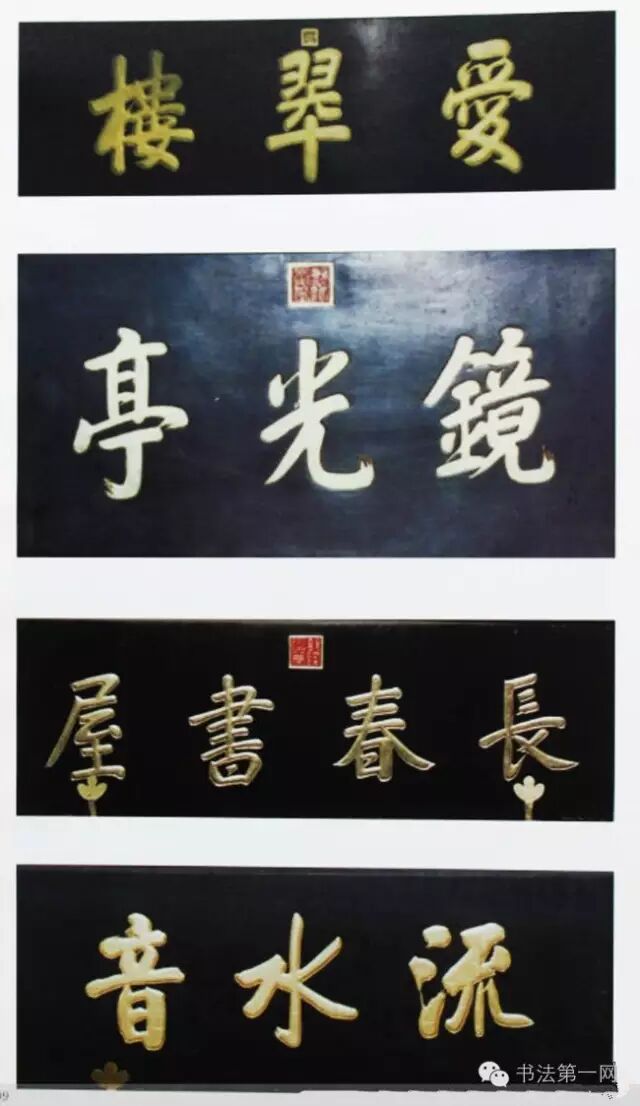 愛翠樓
鏡光亭
長春書屋
流水音
书法第一网